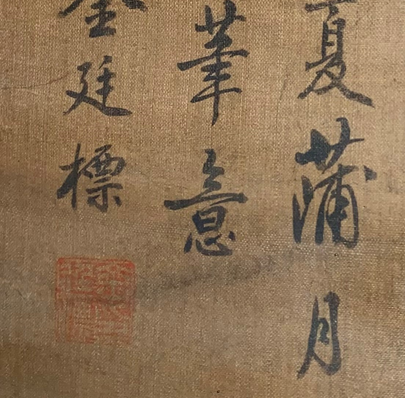 夏蒲月
筆意
金廷標